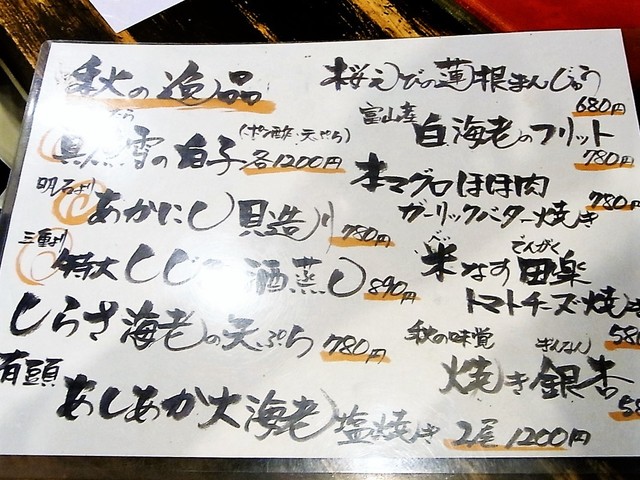 秋の逸品
たら
真鱈の白子 (ポン酢・天ぷら) 各1200円
明石より
あかにし貝造り 780円
三重より
特大しじみ酒蒸し 890円
しらさ海老の天ぷら 780円
有頭
あしあか大海老塩焼き 2尾1200円
桜えびの蓮根まんじゅう
680円
富山産
白海老のフリット
780円
本マグロほほ肉
ガーリックバター焼き 780円
米なす田楽
でんがく
トマトチーズ焼き
580
秋の味覚
ぎんなん
焼き銀杏
58